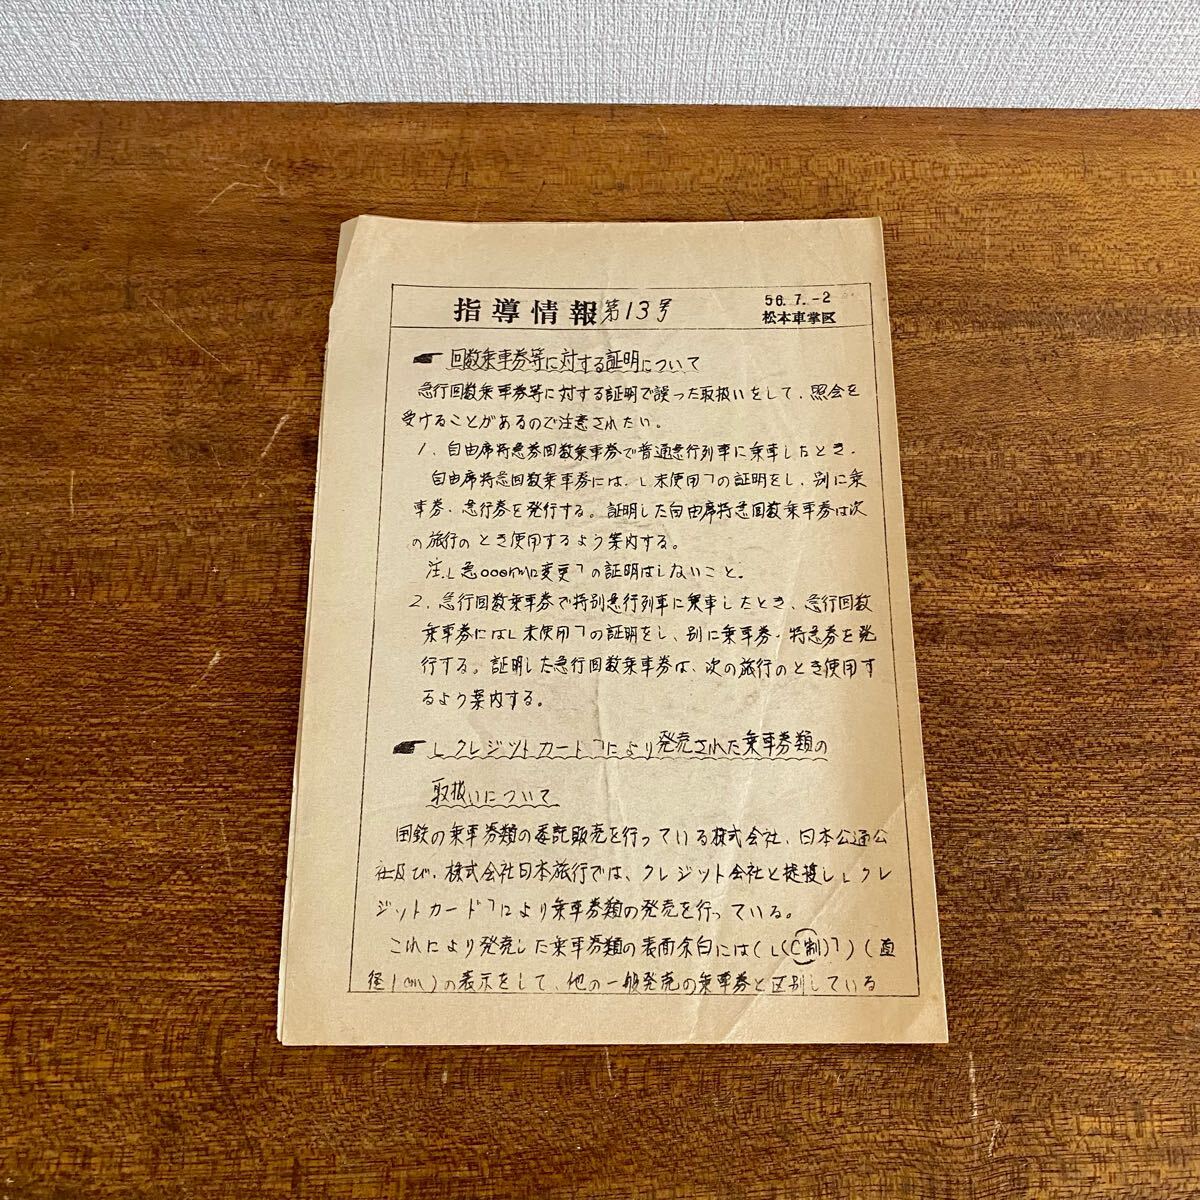 指導情報 第13号
56.7.-2
松本車掌区
☛ 回数乗車券等に対する証明について
急行回数乗車券等に対する証明で誤った取扱いをして、照会を
受けることがあるので注意されたい。
1、自由席特急券回数乗車券で普通急行列車に乗車したとき、
自由席特急回数乗車券には、「未使用」の証明をし、別に乗
車券・急行券を発行する。証明した自由席特急回数乗車券は次
の旅行のとき使用するよう案内する。
注、「急000kmに変更」の証明はしないこと。
2、急行回数乗車券で特別急行列車に乗車したとき、急行回数
乗車券には「未使用」の証明をし、別に乗車券・特急券を発
行する。証明した急行回数乗車券は、次の旅行のとき使用す
るよう案内する。
☛ 「クレジットカード」により発売された乗車券類の
取扱いについて
国鉄の乗車券類の委託販売を行っている株式会社、日本公通公
社及び、株式会社日本旅行では、クレジット会社と提携し「クレ
ジットカード」により乗車券類の発売を行っている。
これにより発売した乗車券類の表面余白には(「(C制)」)(直
径1cm)の表示をして、他の一般発売の乗車券と区別している